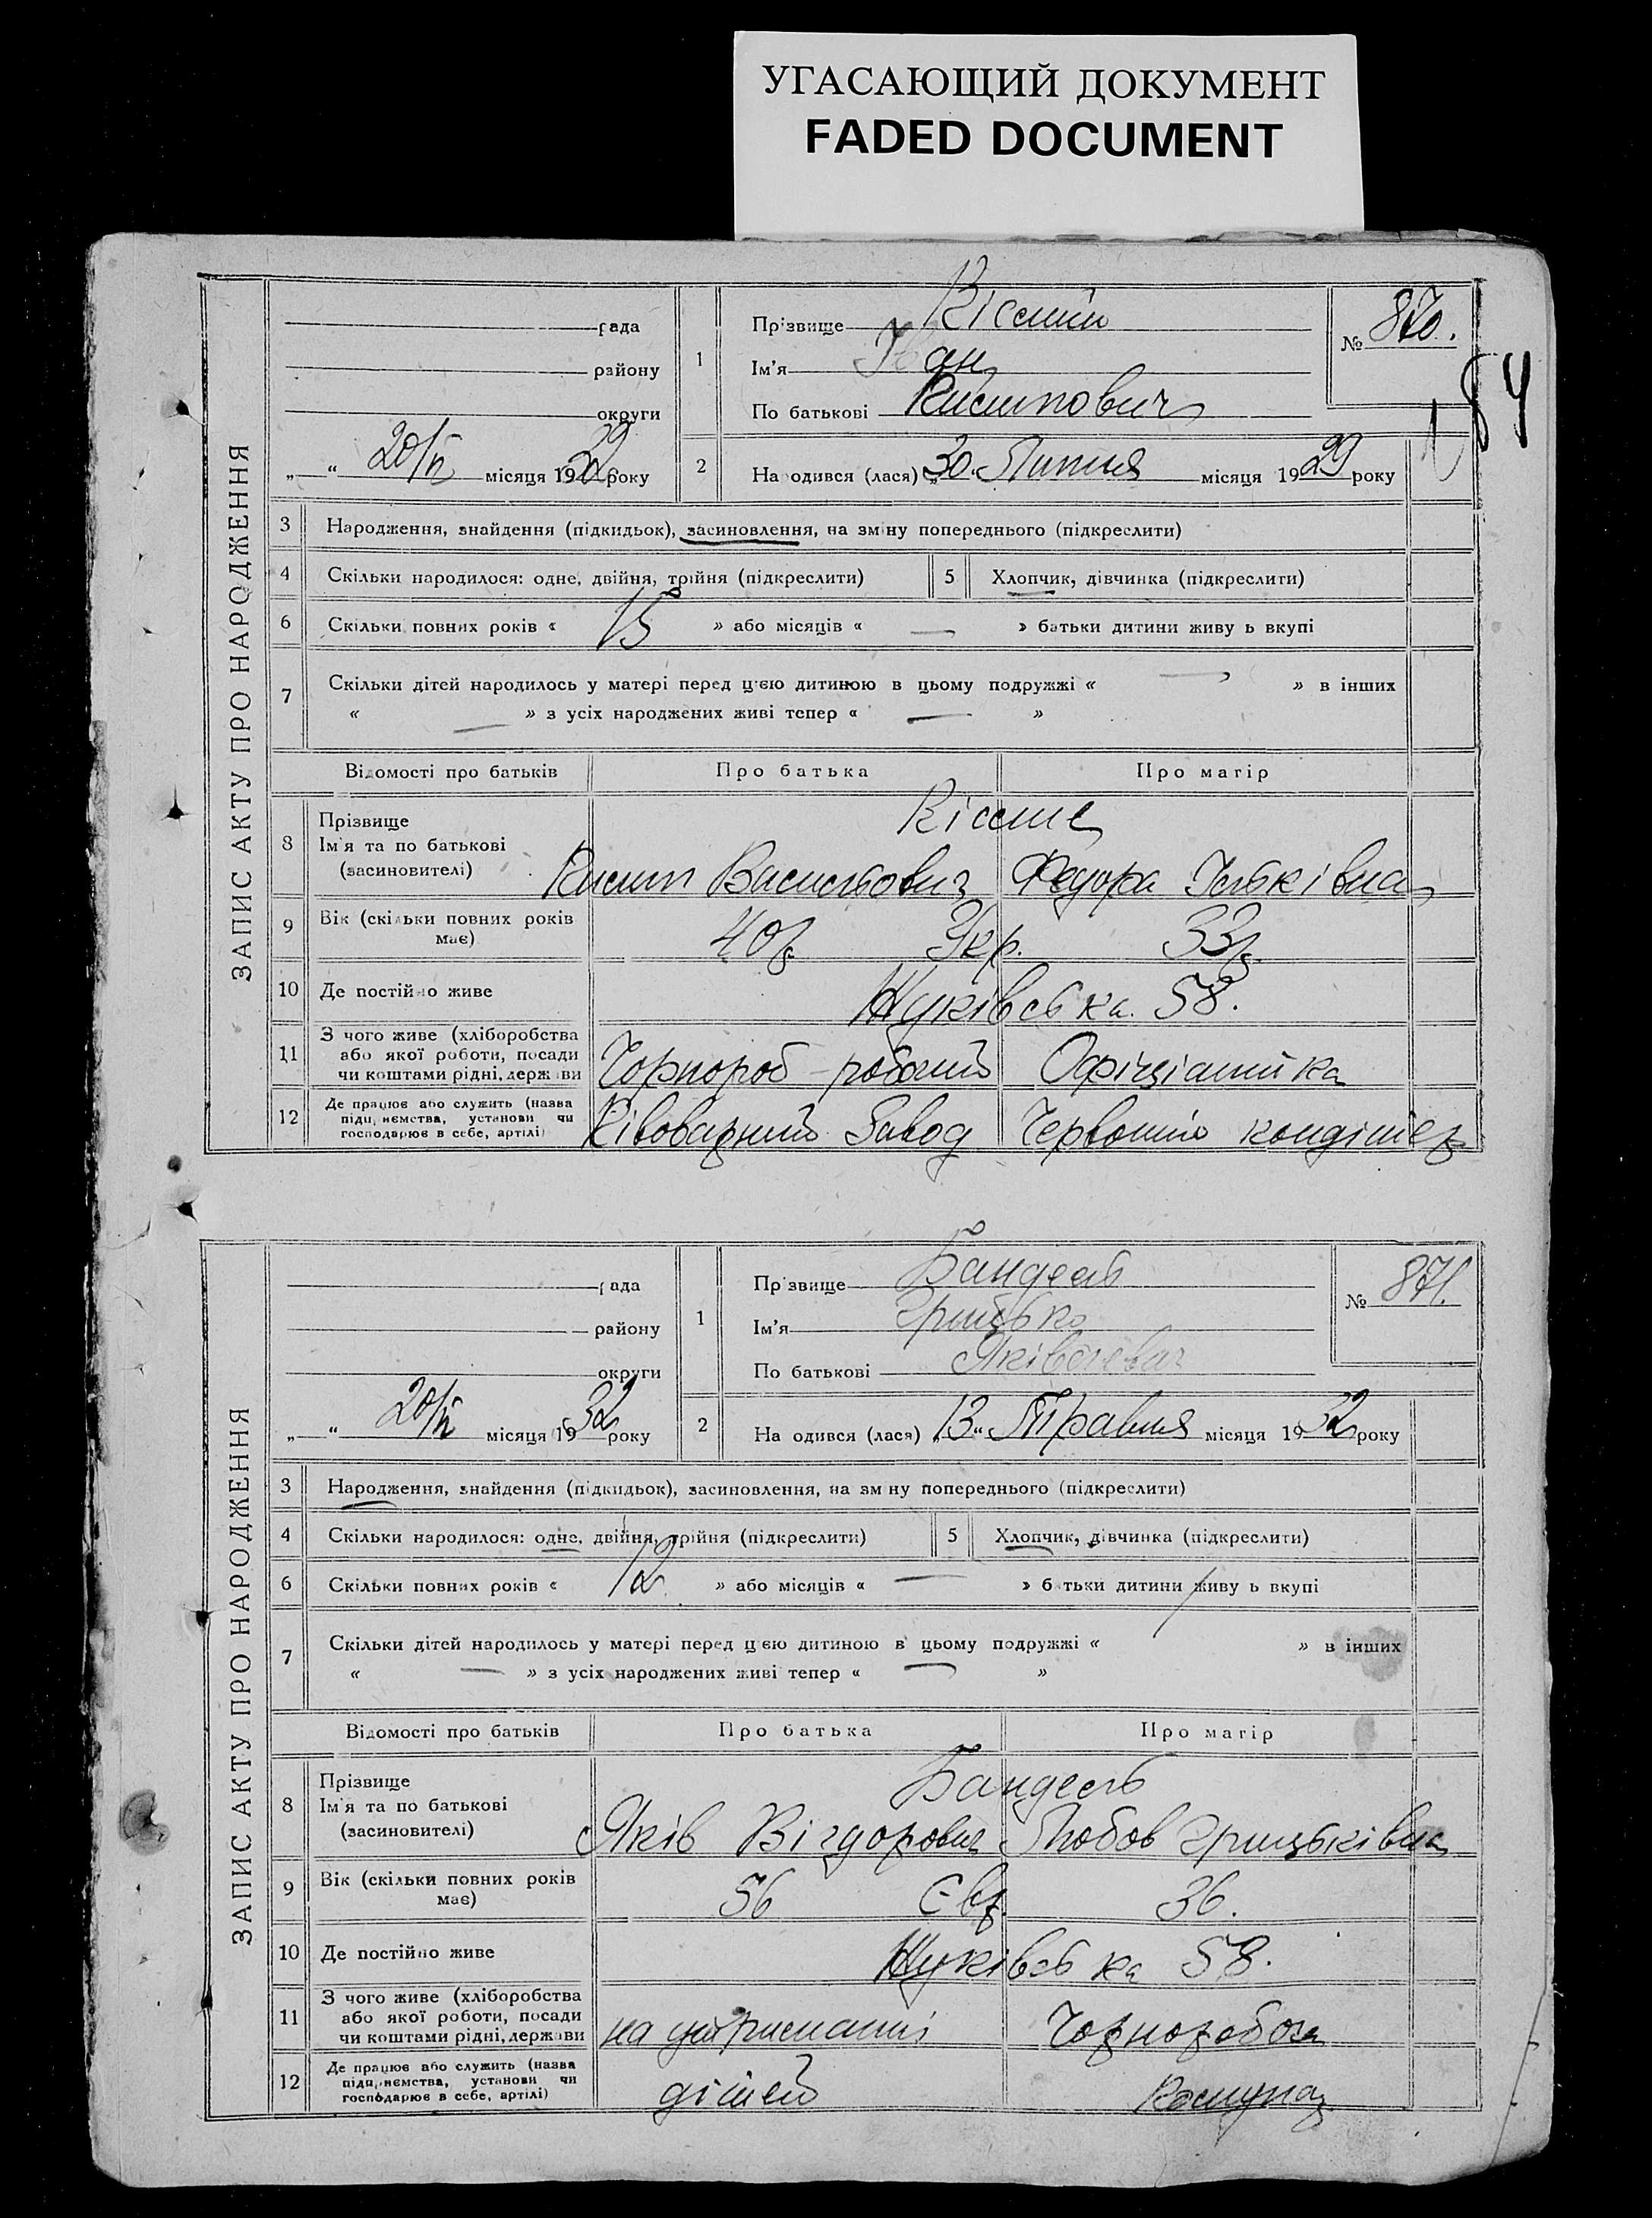 УГАСАЮЩИЙ ДОКУМЕНТ
FADED DOCUMENT
184
ЗАПИС АКТУ ПРО НАРОДЖЕННЯ
рада
району
округи
„ “ 20/V місяця 1932 року
1
Прізвище
Ім'я Іван
По батькові
№ 870.
2
Народився (лася) „30“ Липня місяця 1929 року
3 Народження, знайдення (підкидьок), засиновлення, на зміну попереднього (підкреслити)
4 Скільки народилося: одне, двійня, трійня (підкреслити) 5 Хлопчик, дівчинка (підкреслити)
6 Скільки повних років « 15 » або місяців « — » батьки дитини живуть вкупі
7 Скільки дітей народилось у матері перед цією дитиною в цьому подружжі « — » в інших
« — » з усіх народжених живі тепер « — »
Відомості про батьків Про батька Про матір
8 Прізвище
Ім'я та по батькові
(засновителі)
Васильович Федора Ільківна
9 Вік (скільки повних років має) 40р. Укр. 33р.
10 Де постійно живе Жуківська 58.
11 З чого живе (хліборобства
або якої роботи, посади
чи коштами рідні, держави
Чорнороб - робочий Офіціантка
12 Де працює або служить (назва
підприємства, установи чи
господарює в себе, артілі)
Завод Червоний кондітер
ЗАПИС АКТУ ПРО НАРОДЖЕННЯ
рада
району
округи
„ “ 20/V місяця 1932 року
1
Прізвище Бандель
Ім'я Грицько
По батькові Яківлевич
№ 871.
2
Народився (лася) „13“ Травня місяця 1932 року
3 Народження, знайдення (підкидьок), засиновлення, на зміну попереднього (підкреслити)
4 Скільки народилося: одне, двійня, трійня (підкреслити) 5 Хлопчик, дівчинка (підкреслити)
6 Скільки повних років « 12 » або місяців « — » батьки дитини живуть вкупі
7 Скільки дітей народилось у матері перед цією дитиною в цьому подружжі « / » в інших
« — » з усіх народжених живі тепер « — »
Відомості про батьків Про батька Про матір
8 Прізвище
Ім'я та по батькові
(засиновителі)
Бандель
Яків Вігдорович Любов Грицьківна
9 Вік (скільки повних років має) 56 Євр. 36.
10 Де постійно живе Жуківська 58.
11 З чого живе (хліборобства
або якої роботи, посади
чи коштами рідні, держави
на утриманні Чорноробоча
12 Де працює або служить (назва
підприємства, установи чи
господарює в себе, артілі)
дітей